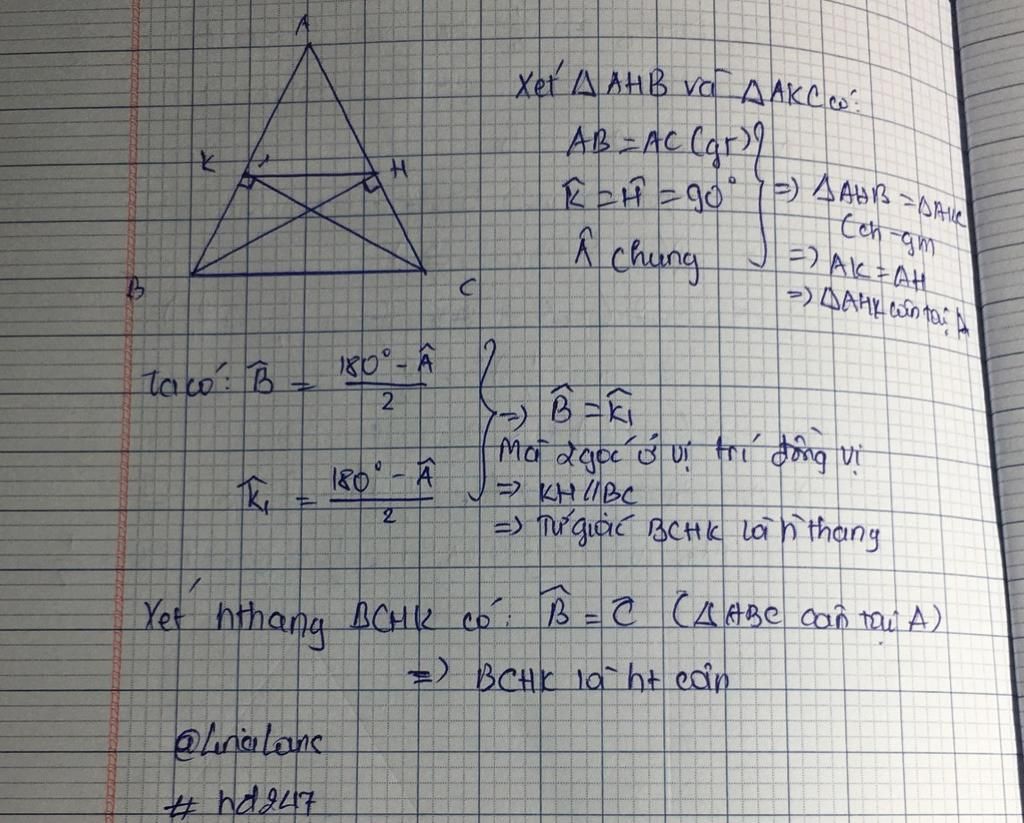 A
K
H
B
C
Xét ΔAHB và ΔAKC có:
AB = AC (gt)
K̂ = Ĥ = 90°
 chung
=> ΔAHB = ΔAKC
(ch-gn
=> AK = AH
=> ΔAHK cân tại A
Ta có: B̂ = (180° - Â)/2
K̂₁ = (180° - Â)/2
=> B̂ = K̂₁
Mà 2 góc ở vị trí đồng vị
=> KH // BC
=> Tứ giác BCHK là hthang
Xét hthang BCHK có: B̂ = C̄ (ΔABC cân tại A)
=> BCHK là ht cân
# hd247